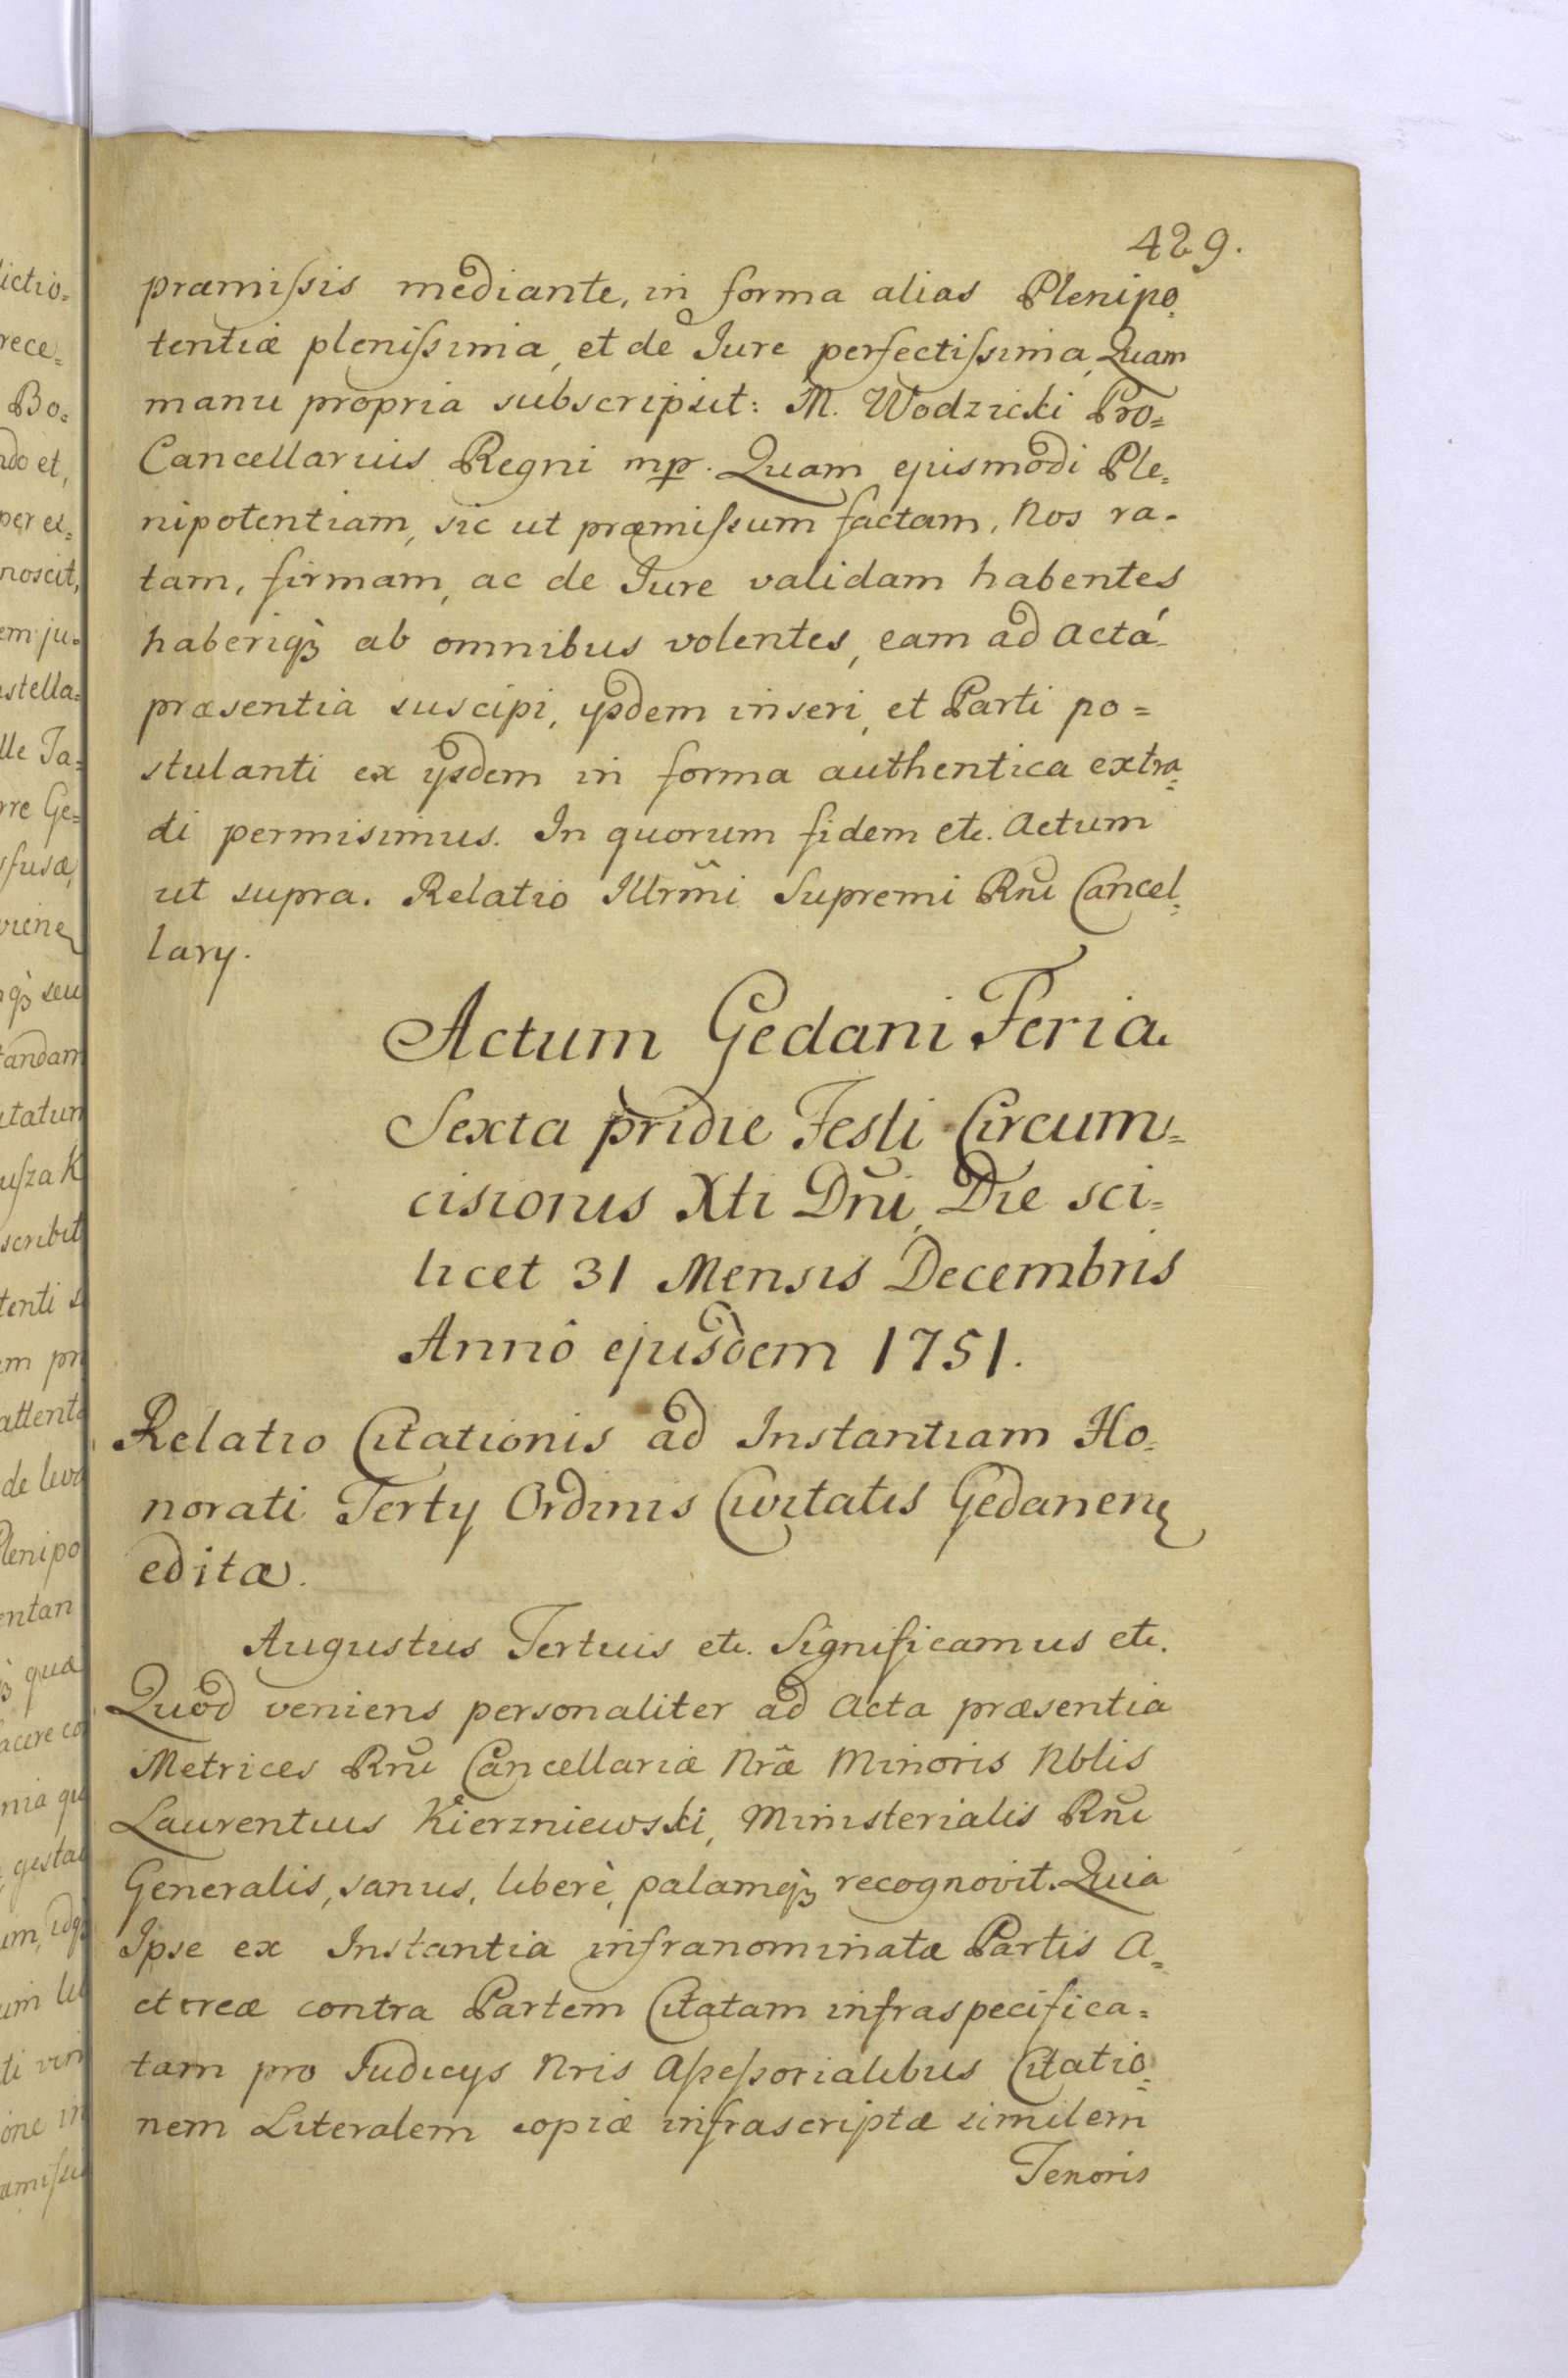 429.
præmiſsis mediante, in forma alias Plenipo=
tentiæ pleniſsima, et de Jure perfectiſsima, Quam
manu propria subscripsit: M. Wodzicki Pro=
Cancellarius Regni mp. Quam ejusmodi Ple=
nipotentiam, sic ut præmiſsum factam, Nos ra=
tam, firmam, ac de Jure validam habentes
haberiqꝫ ab omnibus volentes, eam ad Acta
præsentia suscipi, ijsdem inseri, et Parti po=
stulanti ex ijsdem in forma authentica extra=
di permisimus. In quorum fidem etc. Actum
ut supra. Relatio Illrm̃i Supremi Rñi Cancel=
lary.
Actum Gedani Feria
Sexta pridie Festi Circum=
cisionis Xti Dñi, Die sci=
licet 31 Mensis Decembris
Annô ejusdem 1751.
Relatio Citationis ad Instantiam Ho=
norati Terty Ordinis Civitatis Gedanen
editæ.
Augustus Tertius etc. Significamus etc.
Quod veniens personaliter ad Acta præsentia
Metrices Rñi Cancellariæ Nrã Minoris Nblis
Laurentius Kierzniewski, Ministerialis Rñi
Generalis, sanus, liberè, palamqꝫ recognovit. Quia
Ipse ex Instantia infranominatæ Partis A=
ctoreæ contra Partem Citatam infraspecifica=
tam pro Judicys Nris Aſseſsorialibus Citatio=
nem Literalem copiæ infrascriptæ similem
Tenoris